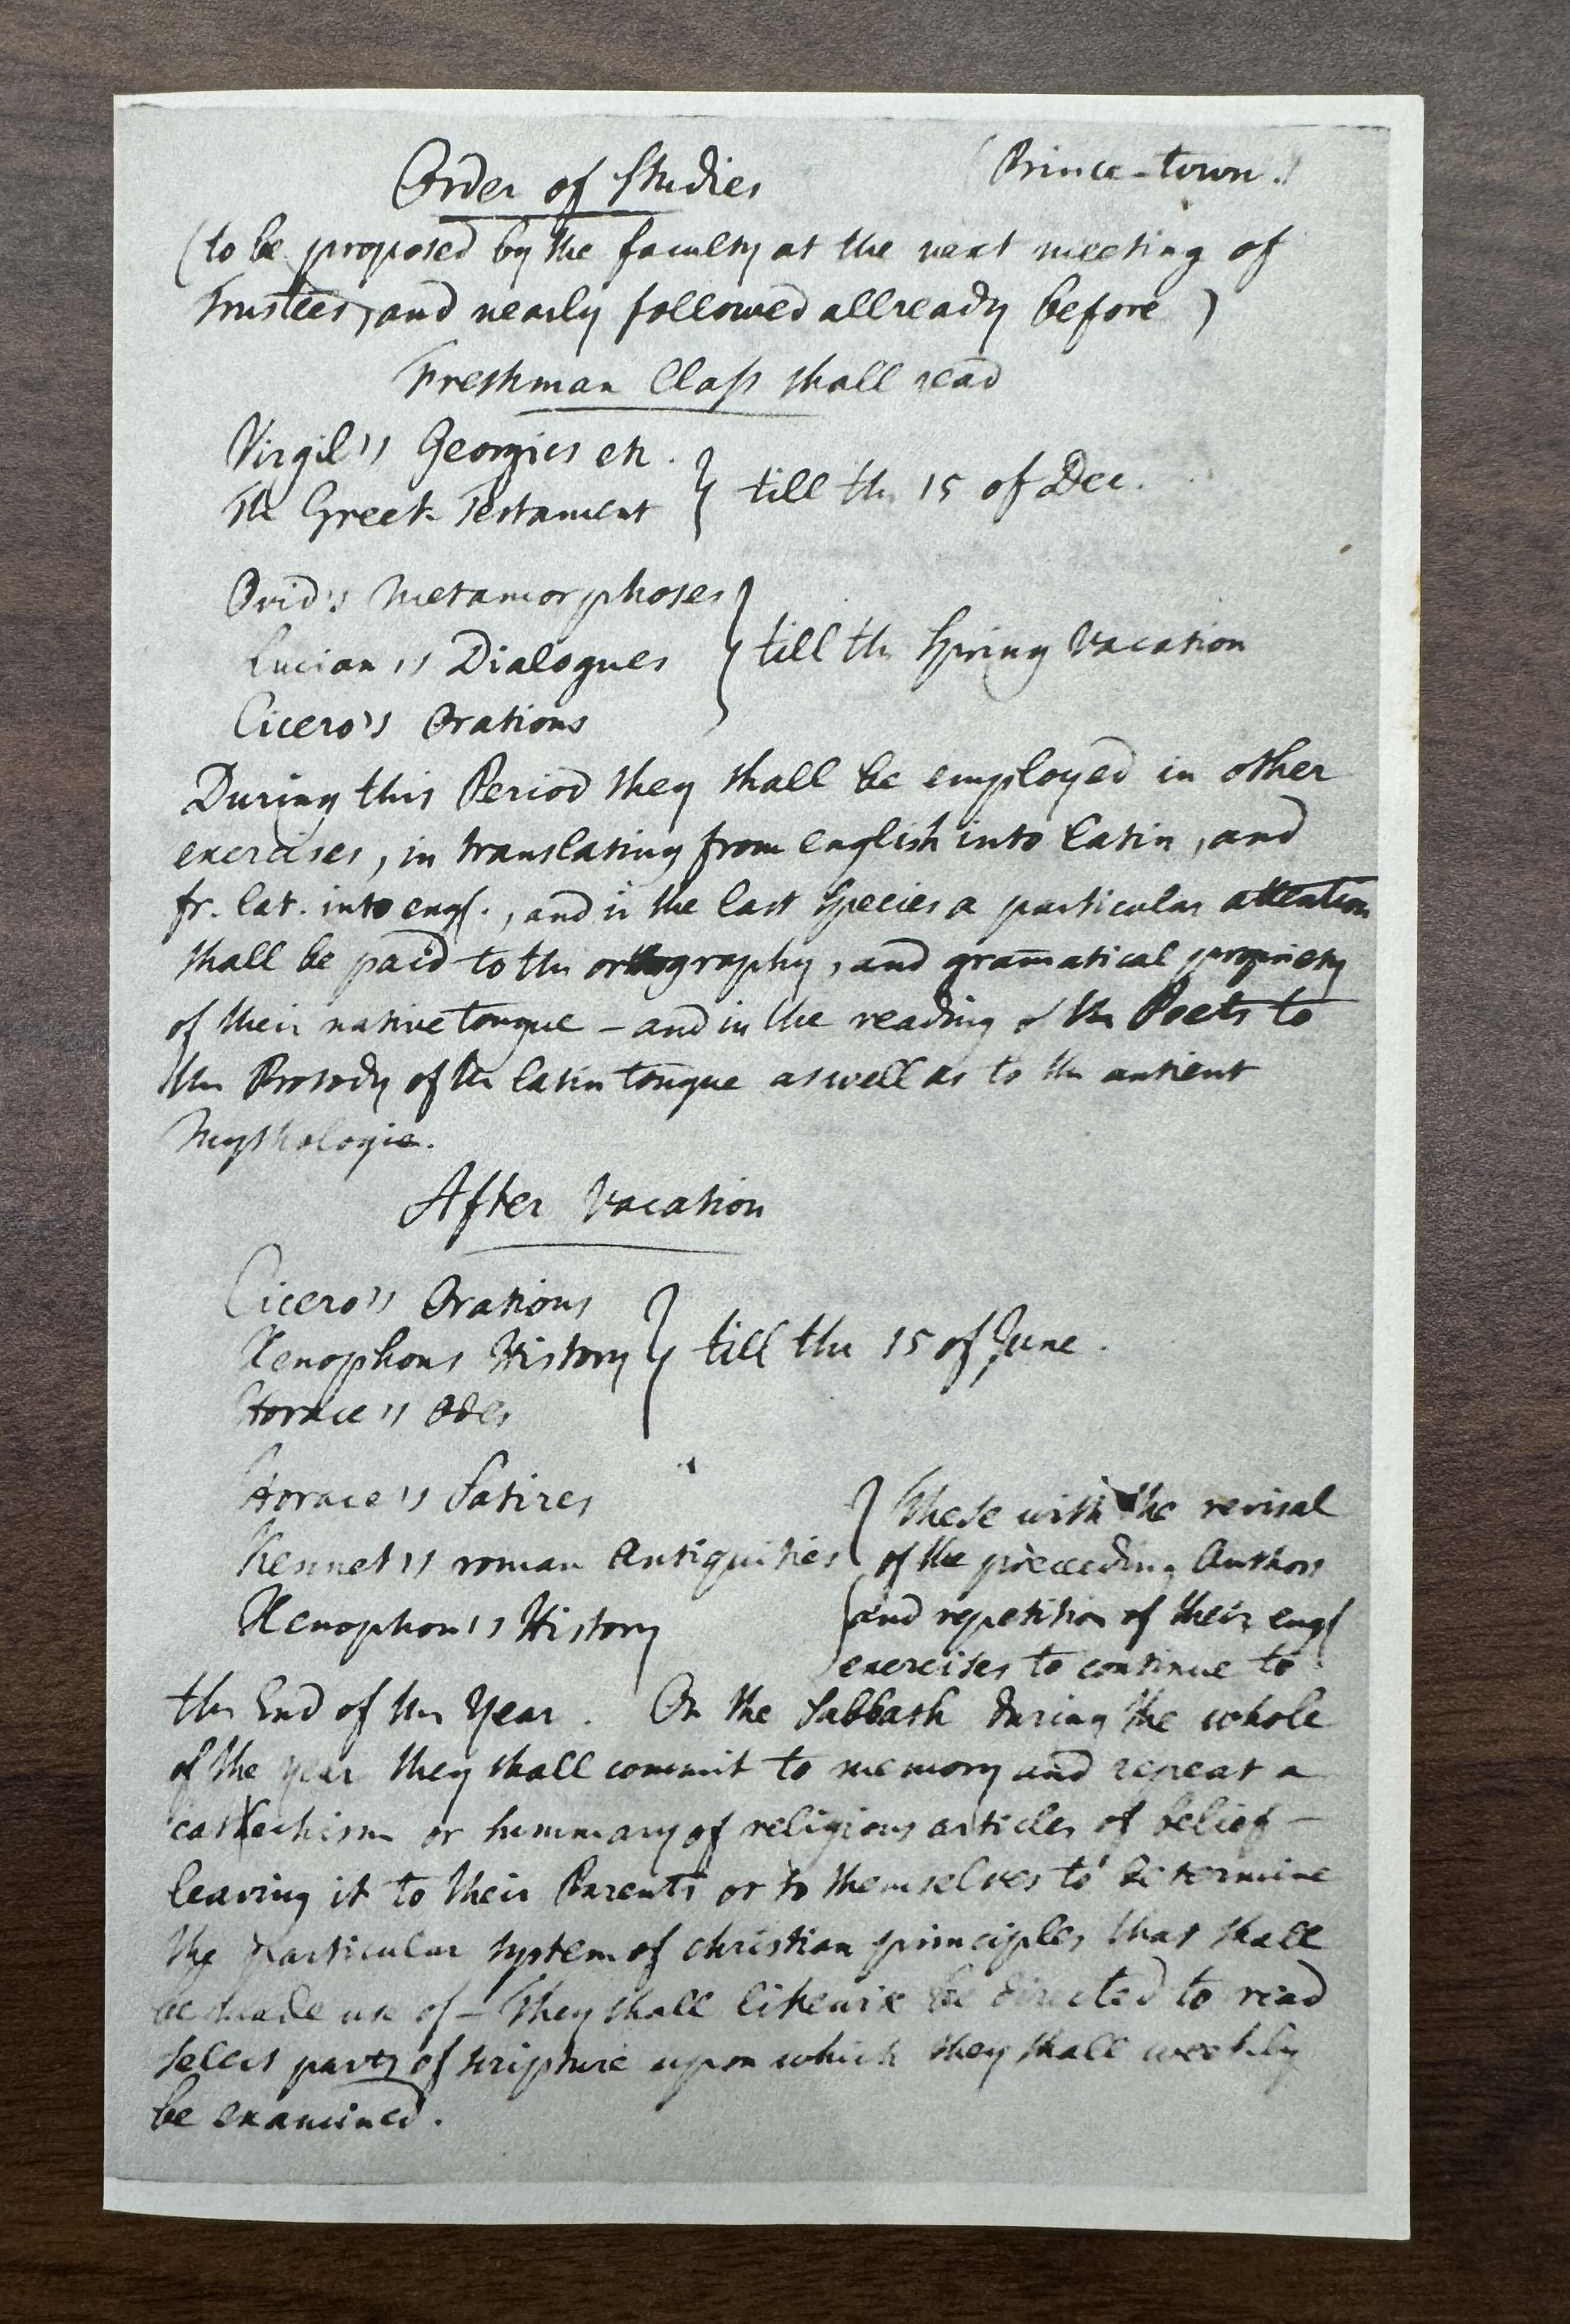 Order of Studies (Prince-town.)
(to be proposed by the faculty at the next meeting of
Trustees, and nearly followed allready before)
Freshman Class shall read
Virgil's Georgics etc.
The Greek Testament } till the 15 of Dec.
Ovid's Metamorphoses
Lucian's Dialogues } till the Spring Vacation
Cicero's Orations
During this Period they shall be employed in other
exercises, in translating from english into Latin, and
fr. lat. into engl., and in the last Species a particular attention
shall be paid to the orthography, and gramatical propriety
of their native tongue – and in the reading of the Poets to
the Prosody of the latin tongue as well as to the antient
Mythologie.
After Vacation
Cicero's Orations
Xenophons History } till the 15 of June.
Horace's Odes
Horace's Satires } These with the revisal
Kennet's roman Antiquities of the preceeding Authors
Xenophon's History and repetition of their engl
exercises to continue to
the End of the Year. On the Sabbath during the whole
of the year they shall commit to memory and repeat a
catechism or summary of religious articles of belief –
leaving it to their Parents or to themselves to determine
the particular system of christian principles that shall
be made use of – They shall likewise be directed to read
select parts of scripture upon which they shall weekly
be examined.